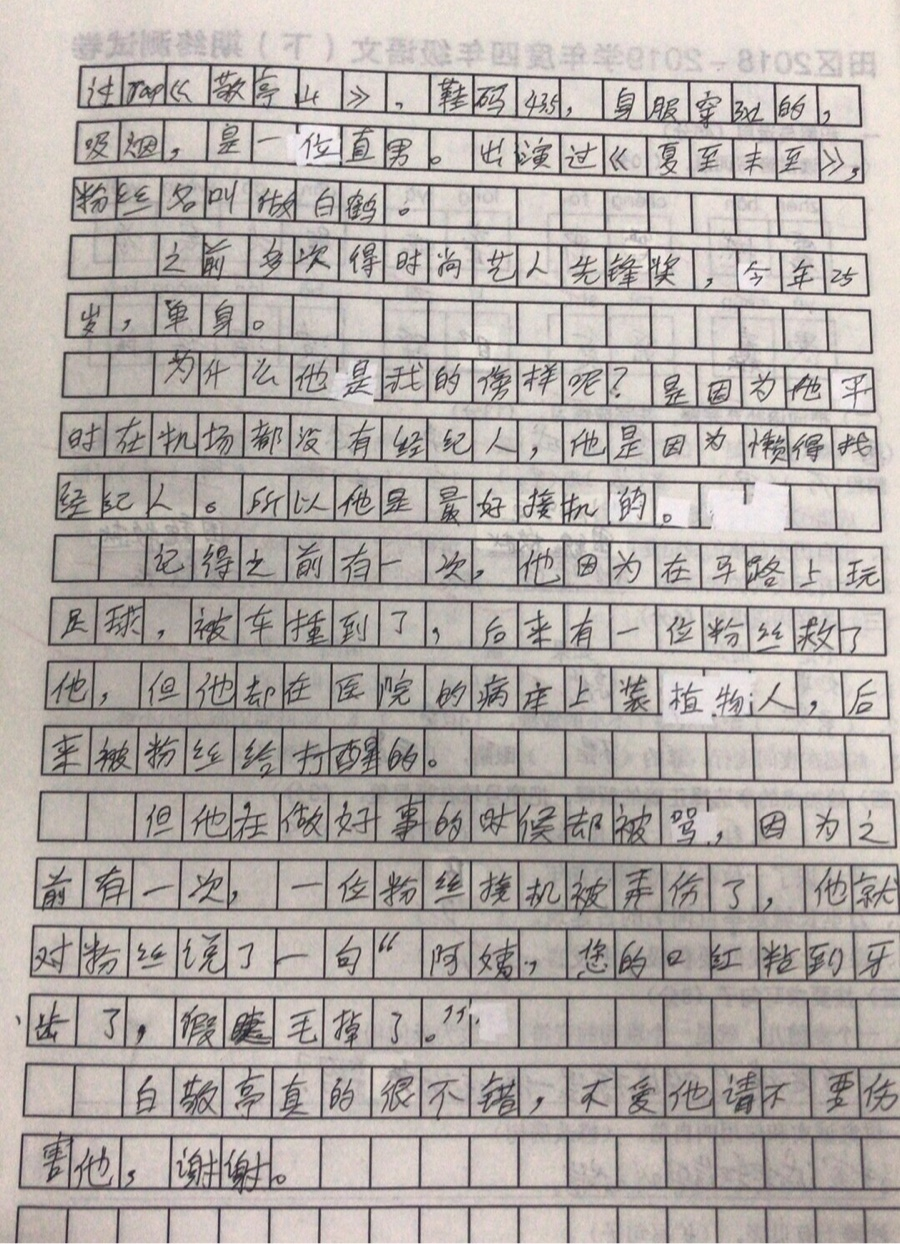 过rap《敬亭山》，鞋码43.5，身服穿3xl的，
吸烟，是一位直男。出演过《夏至未至》，
粉丝名叫做白鹤。
之前多次得时尚艺人先锋奖，今年25
岁，单身。
为什么他是我的偶样呢？是因为他平
时在机场都没有经纪人，他是因为懒得找
经纪人。所以他是最好接机的。
记得之前有一次，他因为在马路上玩
足球，被车撞到了，后来有一位粉丝救了
他，但他却在医院的病床上装植物人，后
来被粉丝给打醒的。
但他在做好事的时候却被骂，因为之
前有一次，一位粉丝接机被弄伤了，他就
对粉丝说了一句“阿姨，您的口红粘到牙
齿了，假睫毛掉了。”
白敬亭真的很不错，不爱他请不要伤
害他，谢谢。